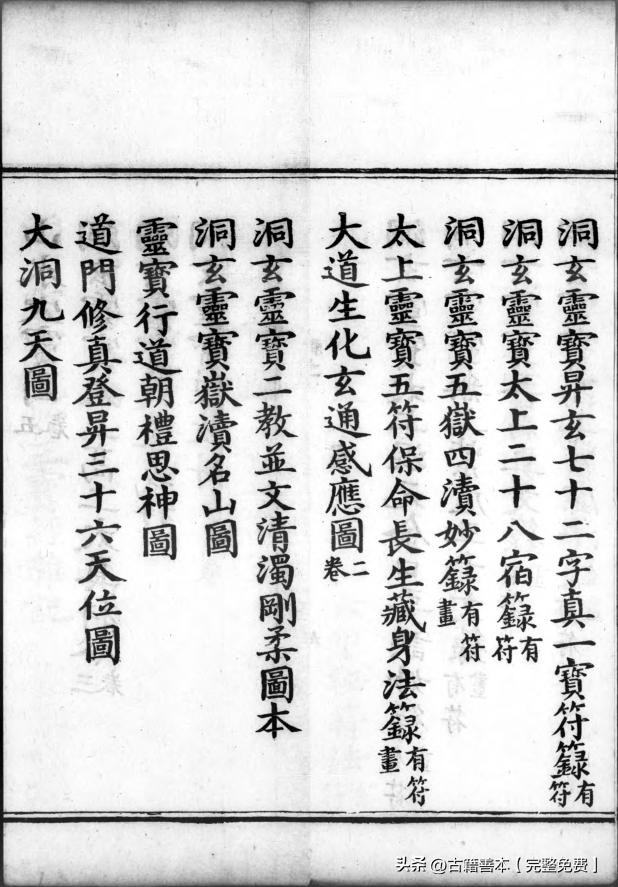 洞玄靈寶昇玄七十二字真一寶符籙有符
洞玄靈寶太上二十八宿籙有符
洞玄靈寶五獄四瀆妙籙有符畫
太上靈寶五符保命長生藏身法籙有符畫
大道生化玄通感應圖二卷
洞玄靈寶二教並文清濁剛柔圖本
洞玄靈寶嶽瀆名山圖
靈寶行道朝禮思神圖
道門修真登昇三十六天位圖
大洞九天圖
头条 @古籍善本【完整免费】